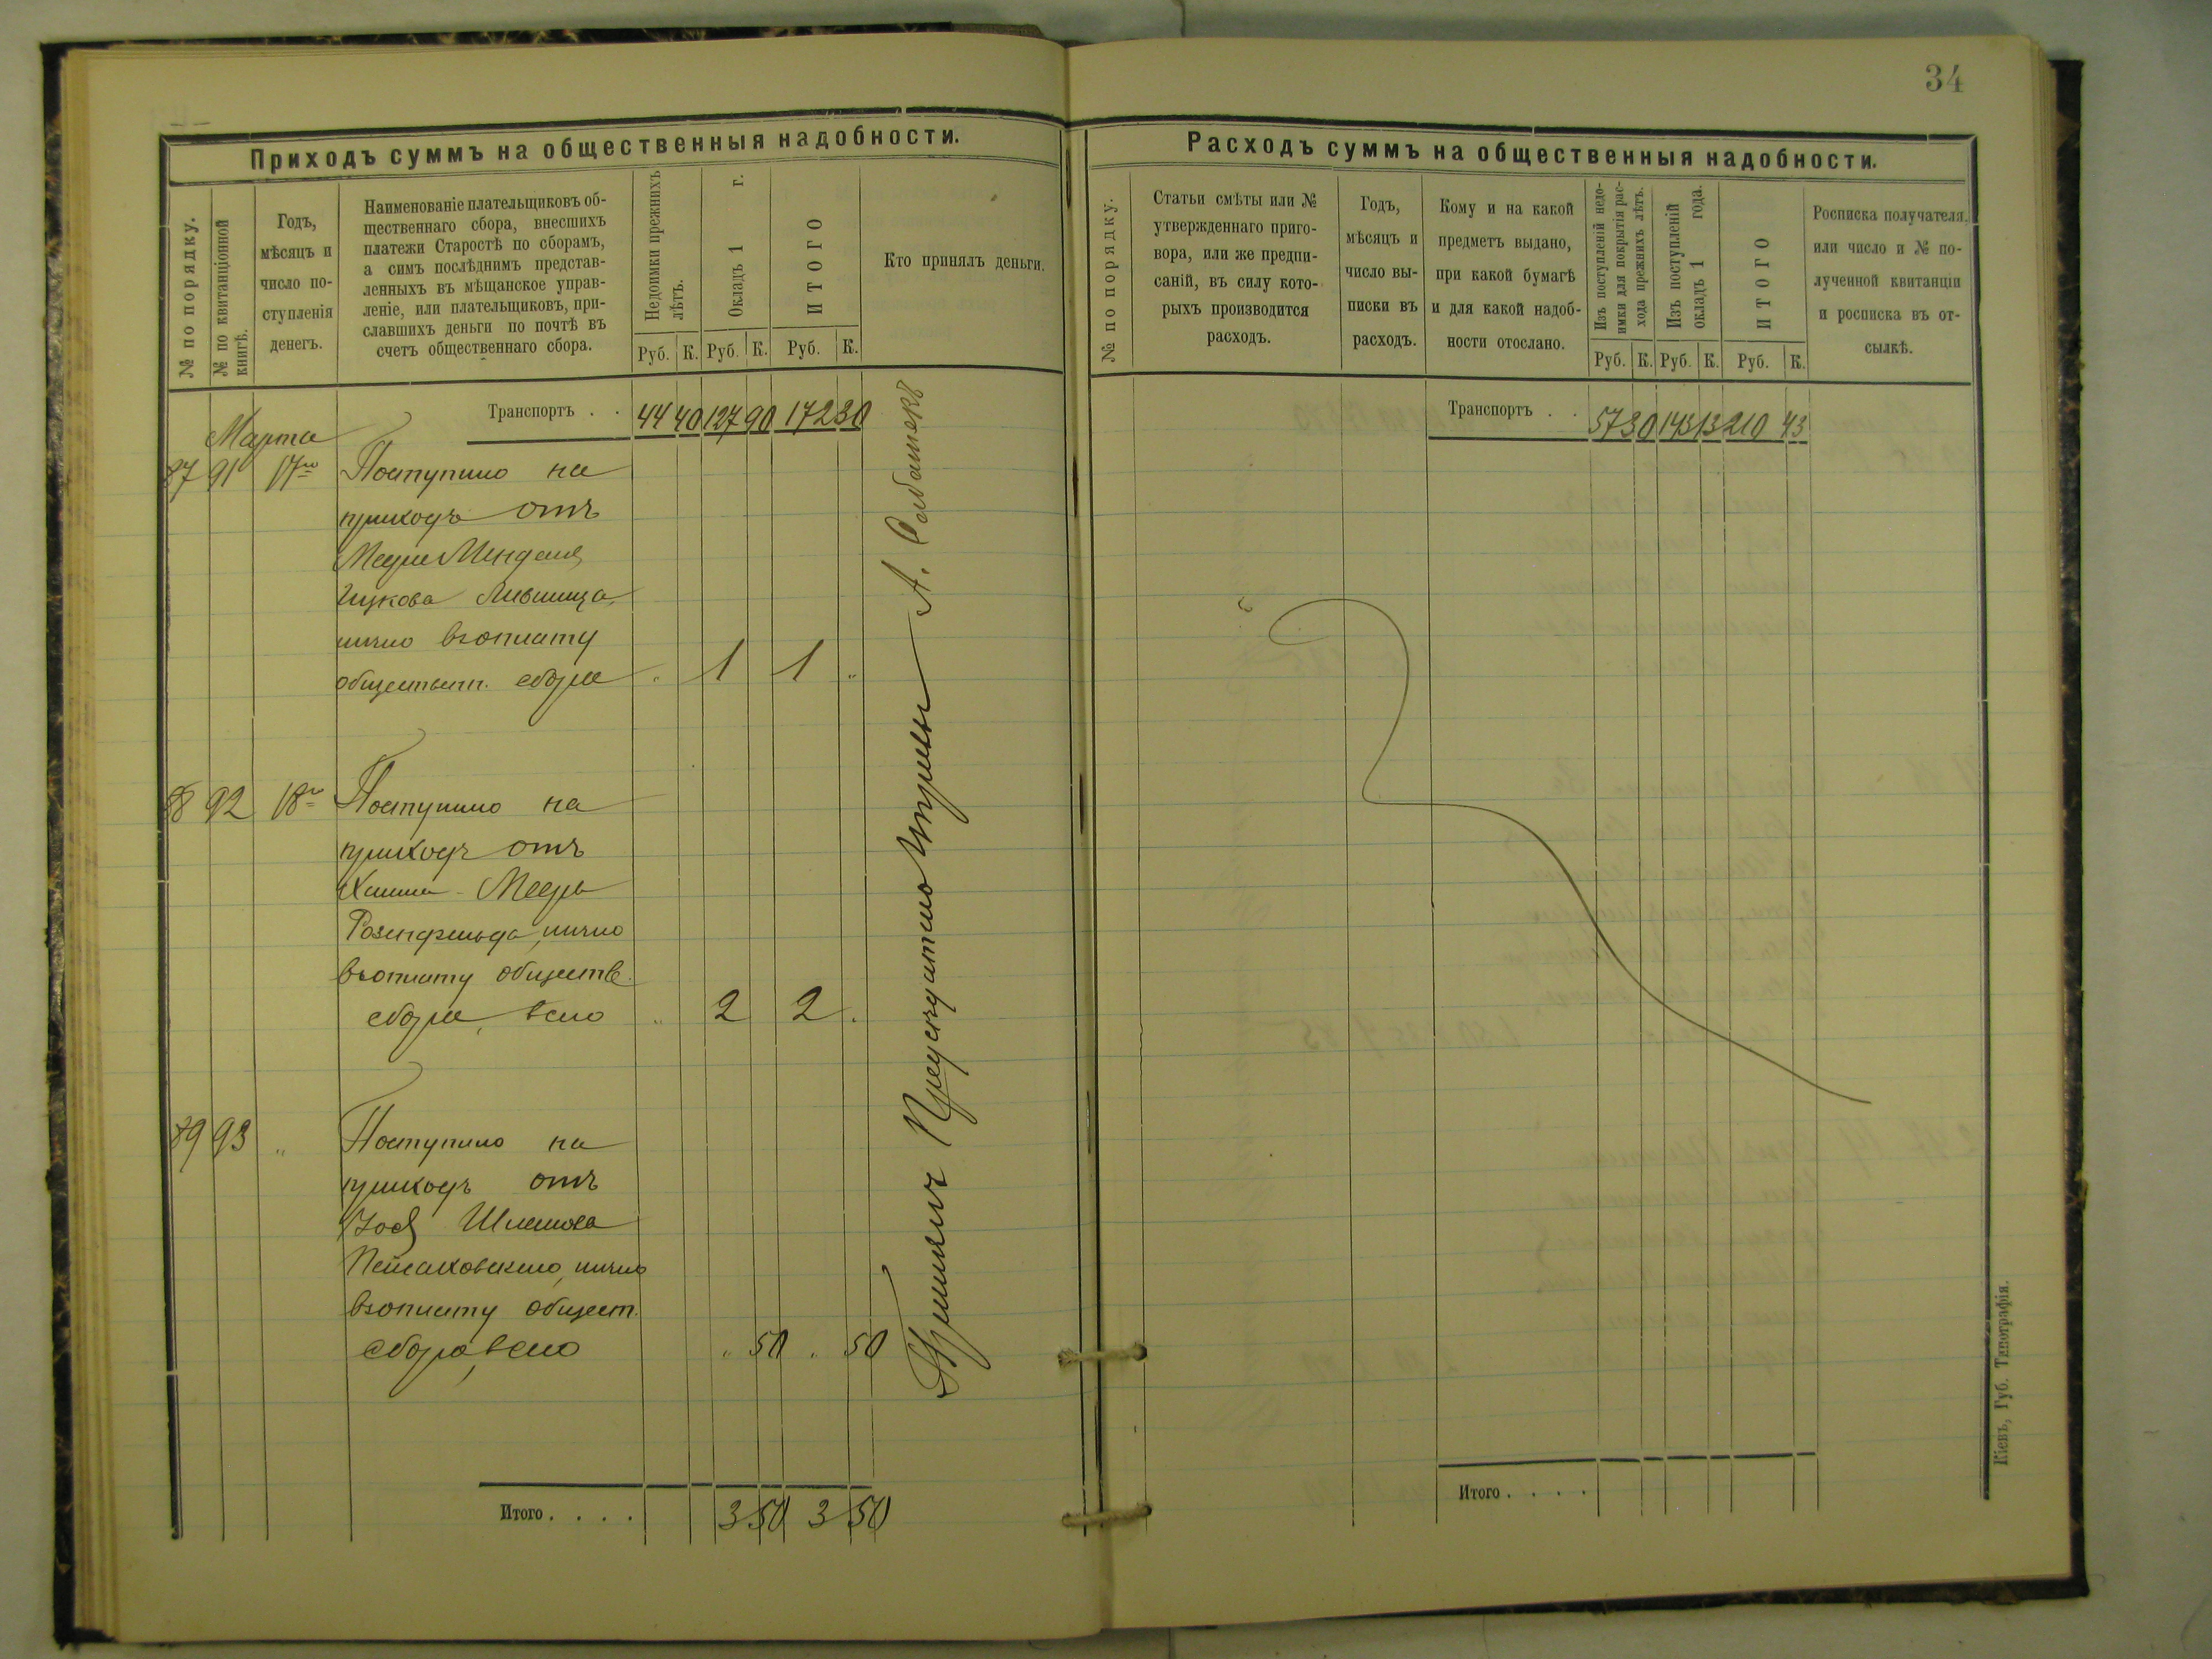 34
Приходъ суммъ на общественныя надобности.
№ по порядку.
№ по квитанціонной
книгѣ.
Годъ,
мѣсяцъ и
число по-
ступленія
денегъ.
Наименованіе плательщиковъ об-
щественнаго сбора, внесшихъ
платежи Старостѣ по сборамъ,
а симъ послѣднимъ представ-
ленныхъ въ мѣщанское управ-
леніе, или плательщиковъ, при-
славшихъ деньги по почтѣ въ
счетъ общественнаго сбора.
Недоимки прежнихъ
лѣтъ.
Окладъ 1 г.
ИТОГО
Руб. К. Руб. К. Руб. К.
Кто принялъ деньги.
Транспортъ . . 44 40 127 90 172 30
Марта
87 91 17го Поступило на
приходъ отъ
Меера Менделя
Ицкова Лившица,
лично въ оплату
обществен. сбора „ 1 1 „
88 92 18го Поступило на
приходъ отъ
Хаима - Меера
Розенфельда, лично
въ оплату обществ.
сбора, всего „ 2 2 „
89 93 „ Поступило на
приходъ отъ
Шлемова
лично
въ оплату общест.
сбора, всего „ 50 „ 50
Итого . . . . 3 50 3 50
А.
Расходъ суммъ на общественныя надобности.
№ по порядку.
Статьи смѣты или №
утвержденнаго приго-
вора, или же предпи-
саній, въ силу кото-
рыхъ производится
расходъ.
Годъ,
мѣсяцъ и
число вы-
писки въ
расходъ.
Кому и на какой
предметъ выдано,
при какой бумагѣ
и для какой надоб-
ности отослано.
Изъ поступленій недо-
имки для покрытія рас-
хода прежнихъ лѣтъ.
Изъ поступленій
окладъ 1 года.
ИТОГО
Руб. К. Руб. К. Руб. К.
Росписка получателя,
или число и № по-
лученной квитанціи
и росписка въ от-
сылкѣ.
Транспортъ . . 57 30 143 13 210 43
Итого . . . .
Кіевъ, Губ. Типографія.